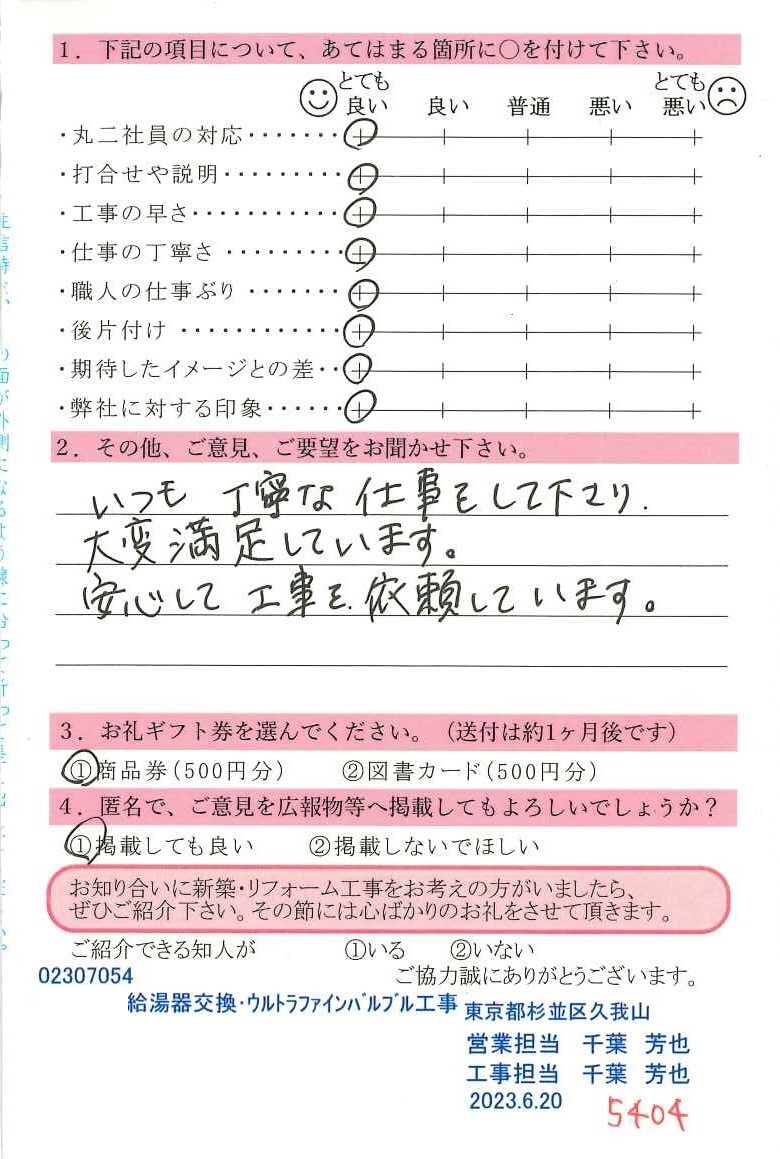 1. 下記の項目について、あてはまる箇所に○を付けて下さい。
とても良い 良い 普通 悪い とても悪い
・丸二社員の対応・・・・・・・
・打合せや説明・・・・・・・・・
・工事の早さ・・・・・・・・・・・
・仕事の丁寧さ ・・・・・・・・・
・職人の仕事ぶり ・・・・・・・
・後片付け ・・・・・・・・・・・・
・期待したイメージとの差・・
・弊社に対する印象・・・・・・
2. その他、ご意見、ご要望をお聞かせ下さい。
いつも 丁寧な 仕事をして下さり、
大変満足しています。
安心して 工事を 依頼しています。
3. お礼ギフト券を選んでください。(送付は約1ヶ月後です)
①商品券(500円分) ②図書カード(500円分)
4. 匿名で、ご意見を広報物等へ掲載してもよろしいでしょうか?
①掲載しても良い ②掲載しないでほしい
お知り合いに新築・リフォーム工事をお考えの方がいましたら、
ぜひご紹介下さい。その節には心ばかりのお礼をさせて頂きます。
ご紹介できる知人が ①いる ②いない
02307054 ご協力誠にありがとうございます。
給湯器交換・ウルトラファインバルブル工事 東京都杉並区久我山
営業担当 千葉 芳也
工事担当 千葉 芳也
2023.6.20 5404